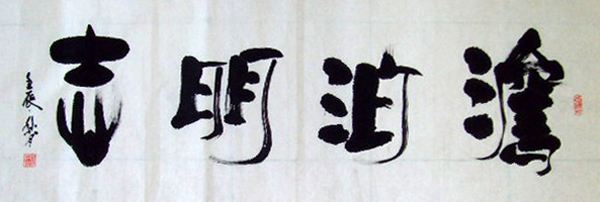 澹泊明志
壬辰